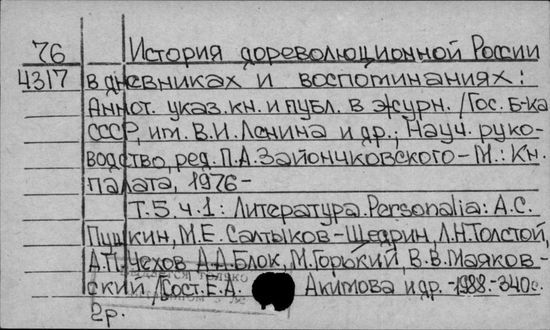 76 История дореволюционной России
4317 в дневниках и воспоминаниях:
Аннот. указ. кн. и публ. в журн. /Гос. б-ка
СССР, им. В.И. Ленина и др.; Науч. руко-
водство, ред. П.А. Зайончковского – М.: Кн.
палата, 1976 –
Т.5. ч.1: Литература. Personalia: А.С.
Пушкин, М.Е. Салтыков-Щедрин, Л.Н. Толстой,
А.П. Чехов, А.А. Блок, М. Горький, В.В. Маяков-
ский /Сост. Е.А. Акимова и др. – 1988. – 340с.
2р.
только